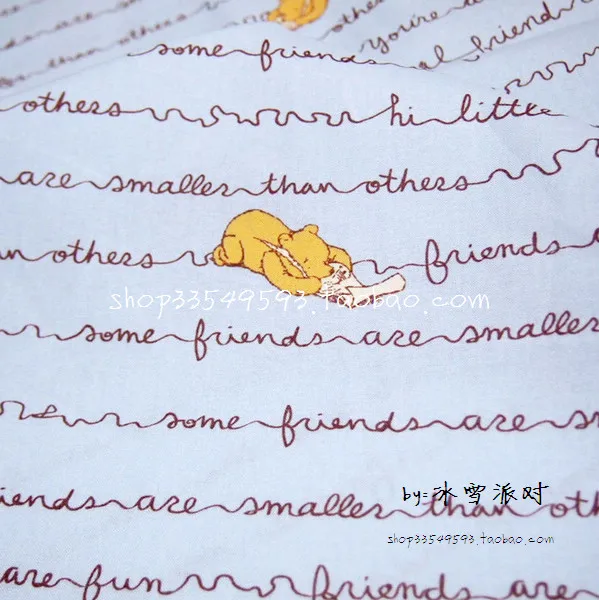 than others
others
you're
some friends
friend
others
hi little
are smaller than others
others
friends
shop33549593.taobao.com
some friends are smaller
some friends are
friends are smaller than
by:冰雪派对
shop33549593.taobao.com
are fun
friends are